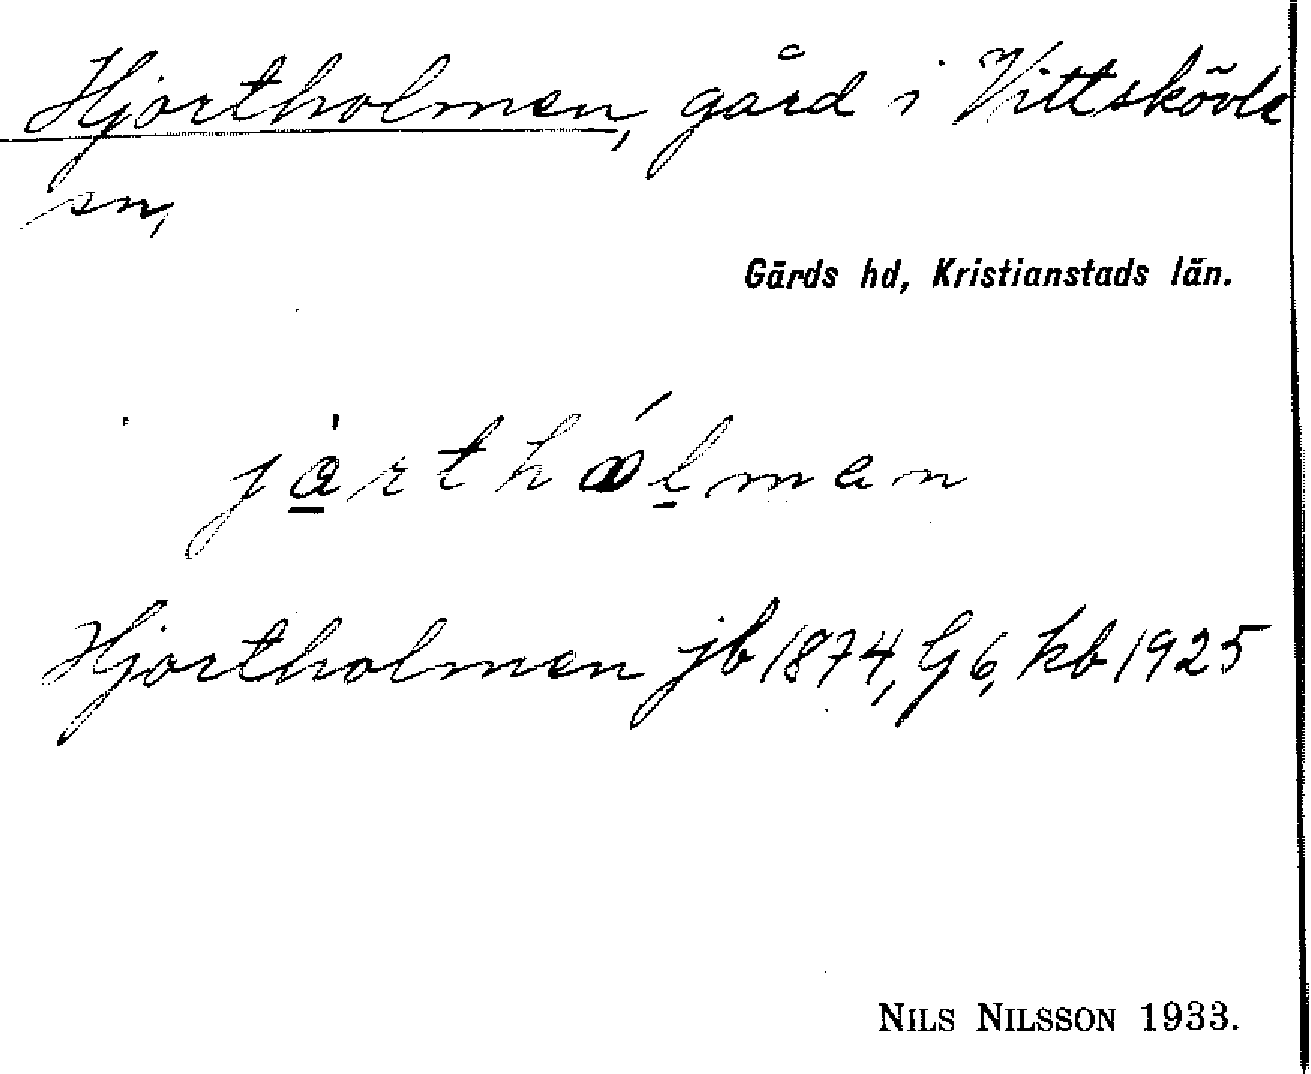 Hjortholmen, gård i Vittskövle
sn,
Gärds hd, Kristianstads län.
Hjortholmen jb 1874, G6, kb 1925
NILS NILSSON 1933.